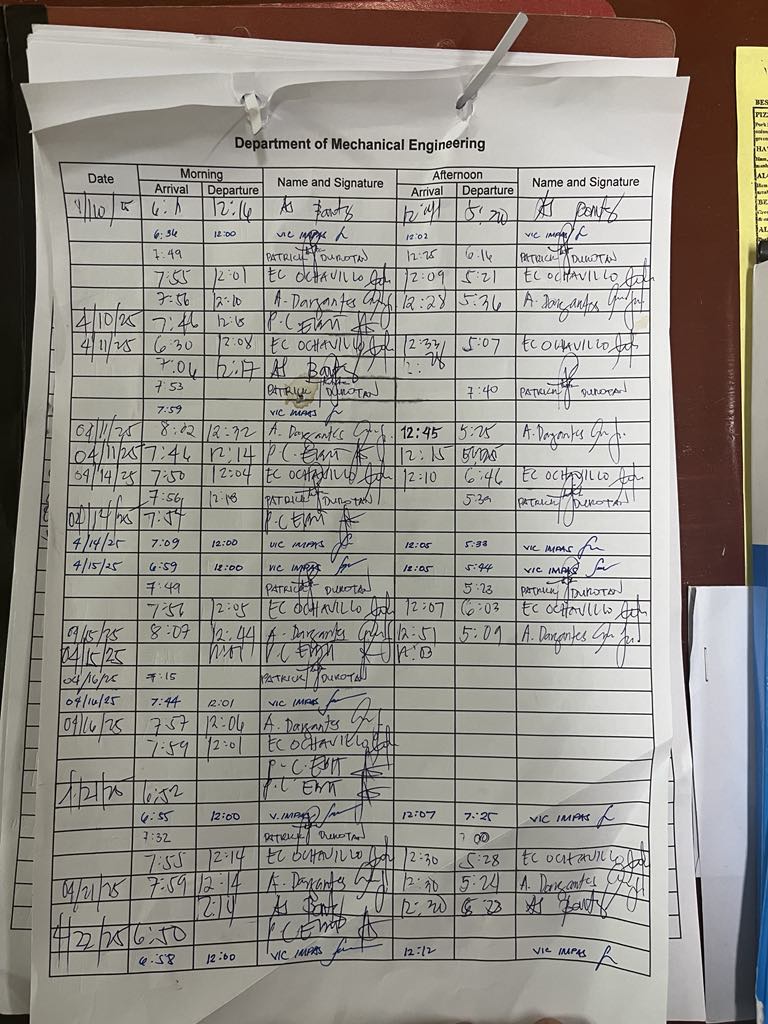 Department of Mechanical Engineering
Date Morning Name and Signature Afternoon Name and Signature
Arrival Departure Arrival Departure
12:16
6:36 12:00 VIC IMPAS 12:02 VIC IMPAS
7:49 PATRICK DUROTAN 12:25 6:16 PATRICK DUROTAN
7:55 12:01 EC OCHAVILLO 12:09 5:21 EC OCHAVILLO
7:56 12:10 A. Dargantes 12:28 5:36 A. Dargantes
4/10/25 7:46 P.C.
4/11/25 6:30 12:08 EC OCHAVILLO 12:33 5:07 EC OCHAVILLO
7:06 12:17
7:53 PATRICK DUROTAN 7:40 PATRICK DUROTAN
7:59 VIC IMPAS
04/11/25 8:02 12:32 A. Dargantes 12:45 5:25 A. Dargantes
04/11/25 7:46 12:14 P.C. 12:15
04/14/25 7:50 12:04 EC OCHAVILLO 12:10 6:46 EC OCHAVILLO
7:56 12:18 PATRICK DUROTAN 5:39 PATRICK DUROTAN
04/14/25 7:54 P.C.
4/14/25 7:09 12:00 VIC IMPAS 12:05 5:33 VIC IMPAS
4/15/25 6:59 12:00 VIC IMPAS 12:05 5:44 VIC IMPAS
7:49 PATRICK DUROTAN 5:23 PATRICK DUROTAN
7:56 12:05 EC OCHAVILLO 12:07 6:03 EC OCHAVILLO
04/15/25 8:07 12:44 A. Dargantes 12:51 5:09 A. Dargantes
04/15/25 P.C.
04/16/25 7:15 PATRICK DUROTAN
04/16/25 7:44 12:01 VIC IMPAS
04/16/25 7:57 12:06 A. Dargantes
7:59 12:01 EC OCHAVILLO
P.C.
6:52 P.C.
6:55 12:00 V. IMPAS 12:07 7:25 VIC IMPAS
7:32 PATRICK DUROTAN PATRICK DUROTAN
7:55 12:14 EC OCHAVILLO 12:30 5:28 EC OCHAVILLO
04/21/25 7:59 12:14 A. Dargantes 12:30 5:24 A. Dargantes
12:30
4/22/25 6:50 P.C.
6:58 12:00 VIC IMPAS 12:12 VIC IMPAS